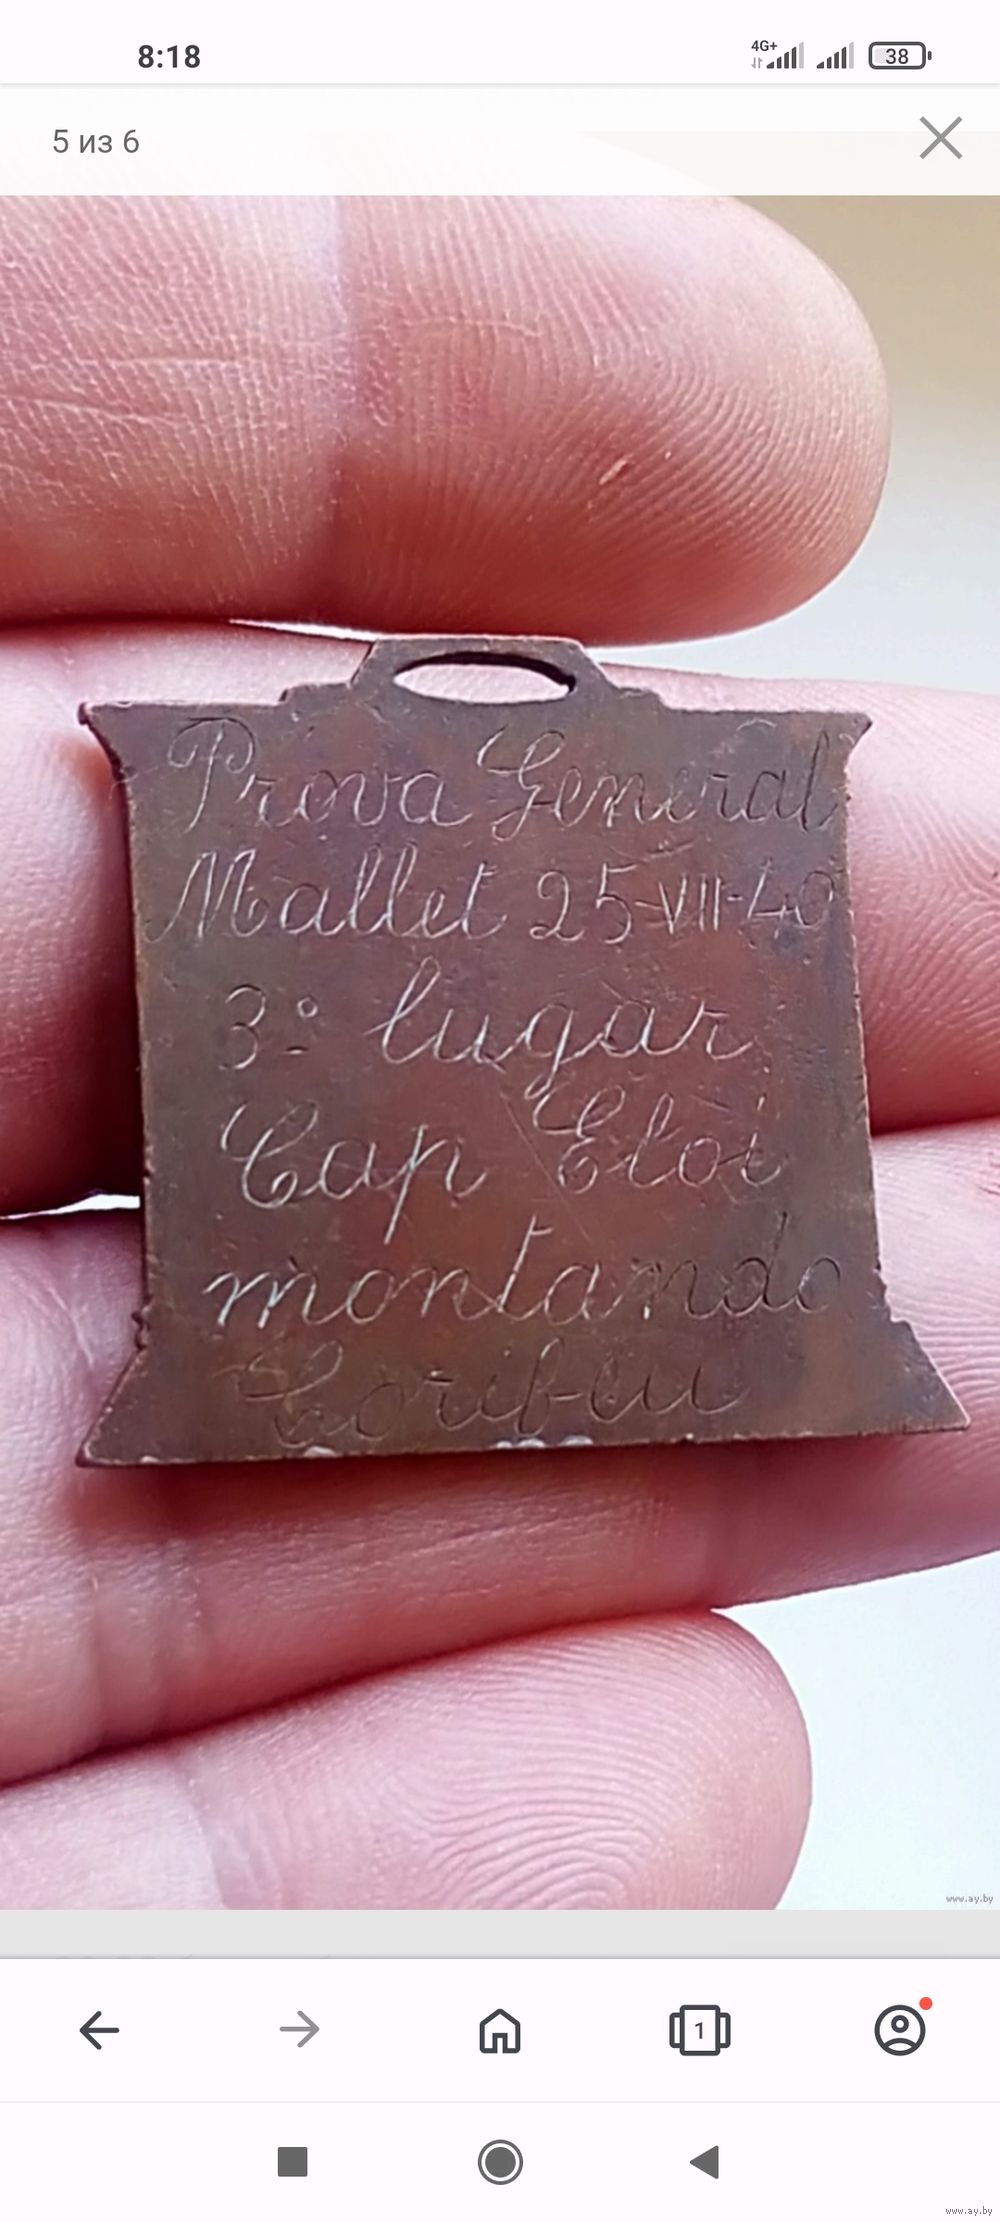 8:18
4G+
38
5 из 6
Prova General
Mallet 25-VII-40
3º lugar
Cap Eloi
montando
www.ay.by
1
www.ay.by